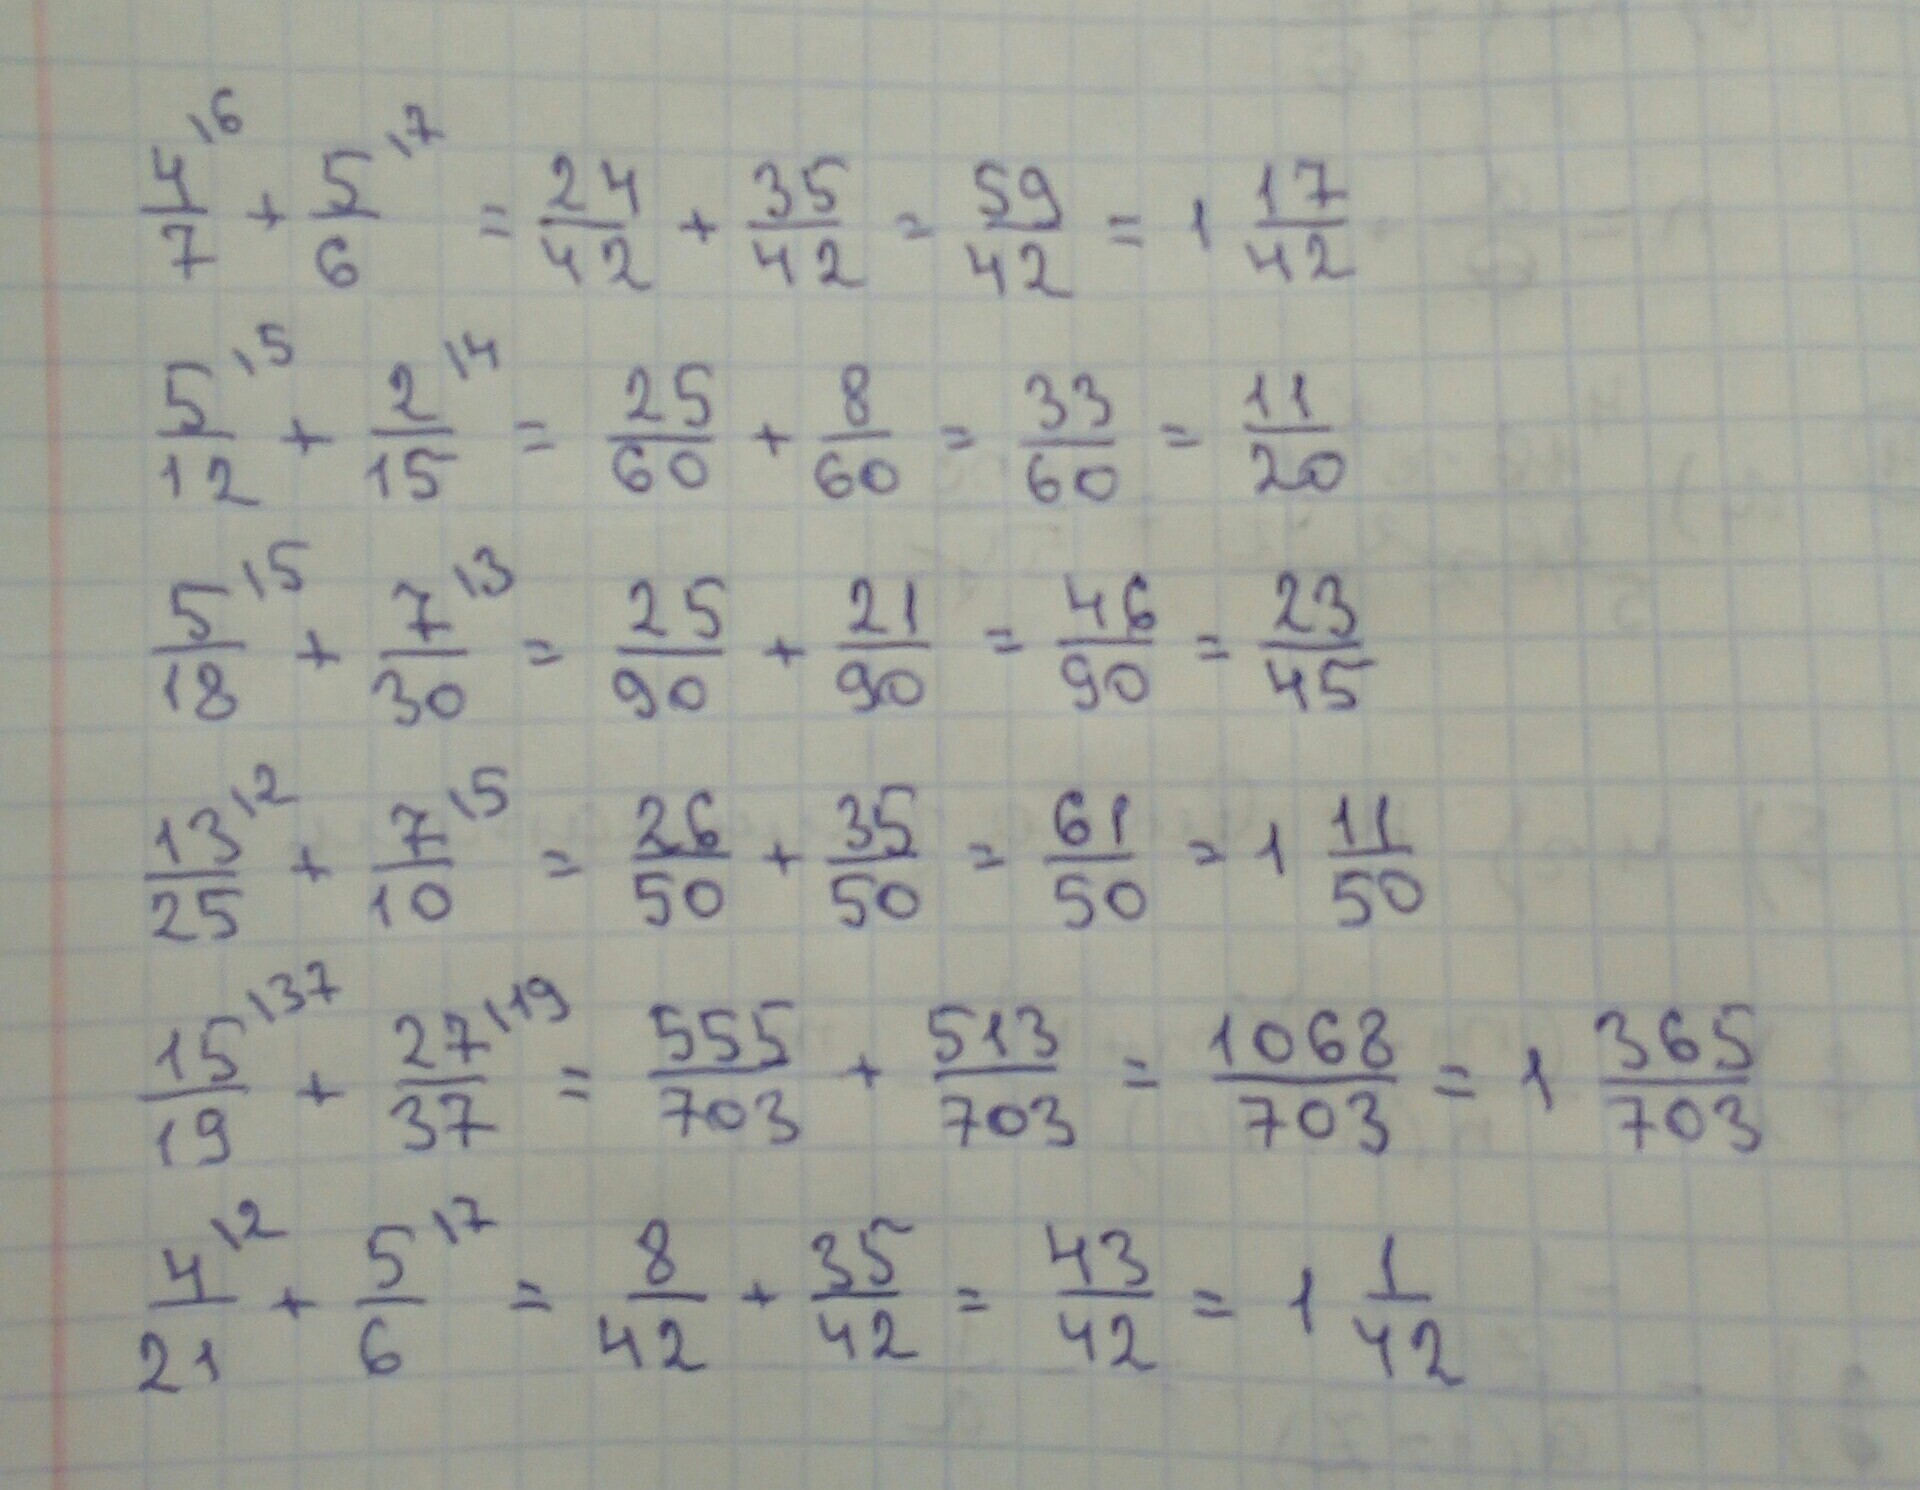 4/7 \6 + 5/6 \7 = 24/42 + 35/42 = 59/42 = 1 17/42
5/12 \5 + 2/15 \4 = 25/60 + 8/60 = 33/60 = 11/20
5/18 \5 + 7/30 \3 = 25/90 + 21/90 = 46/90 = 23/45
13/25 \2 + 7/10 \5 = 26/50 + 35/50 = 61/50 = 1 11/50
15/19 \37 + 27/37 \19 = 555/703 + 513/703 = 1068/703 = 1 365/703
4/21 \2 + 5/6 \7 = 8/42 + 35/42 = 43/42 = 1 1/42